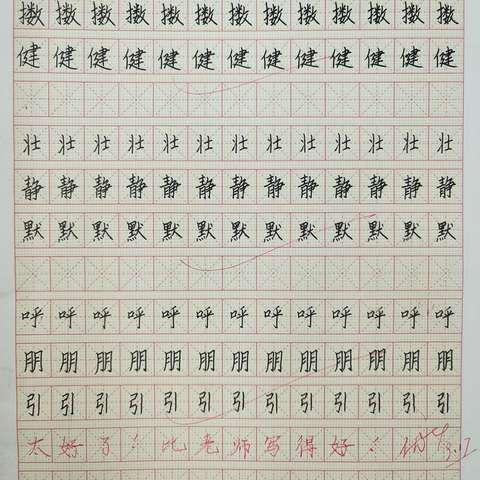 擞擞擞擞擞擞擞擞擞擞擞擞擞
健健健健健健健健健健健健健
壮壮壮壮壮壮壮壮壮壮壮壮壮
静静静静静静静静静静静静静
默默默默默默默默默默默默默
呼呼呼呼呼呼呼呼呼呼呼呼呼
朋朋朋朋朋朋朋朋朋朋朋朋朋
引引引引引引引引引引引引引
太好了！比老师写得好！